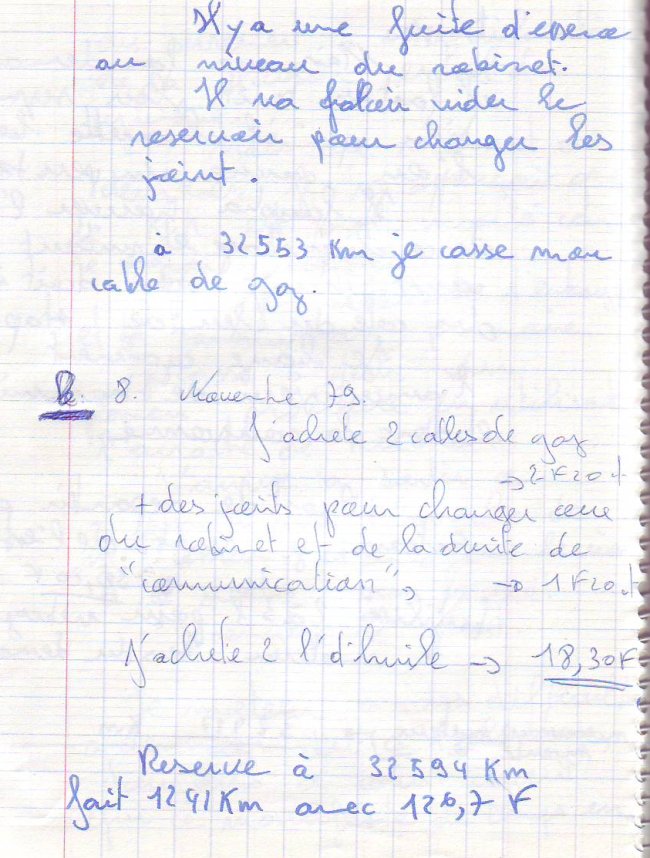 Il y a une fuite d'essence
au niveau du robinet.
Il va falloir vider le
reservoir pour changer les
joint.
à 32553 Km je casse mon
cable de gaz.
Le 8. Novembre 79.
J'achete 2 cables de gaz
→ 2F20 t
+ des joints pour changer ceux
du robinet et de la durite de
"communication", → 1F20 t
J'achete 2 l d'huile → 18,30F
Reserve à 32594 Km
fait 1241Km avec 126,7 F